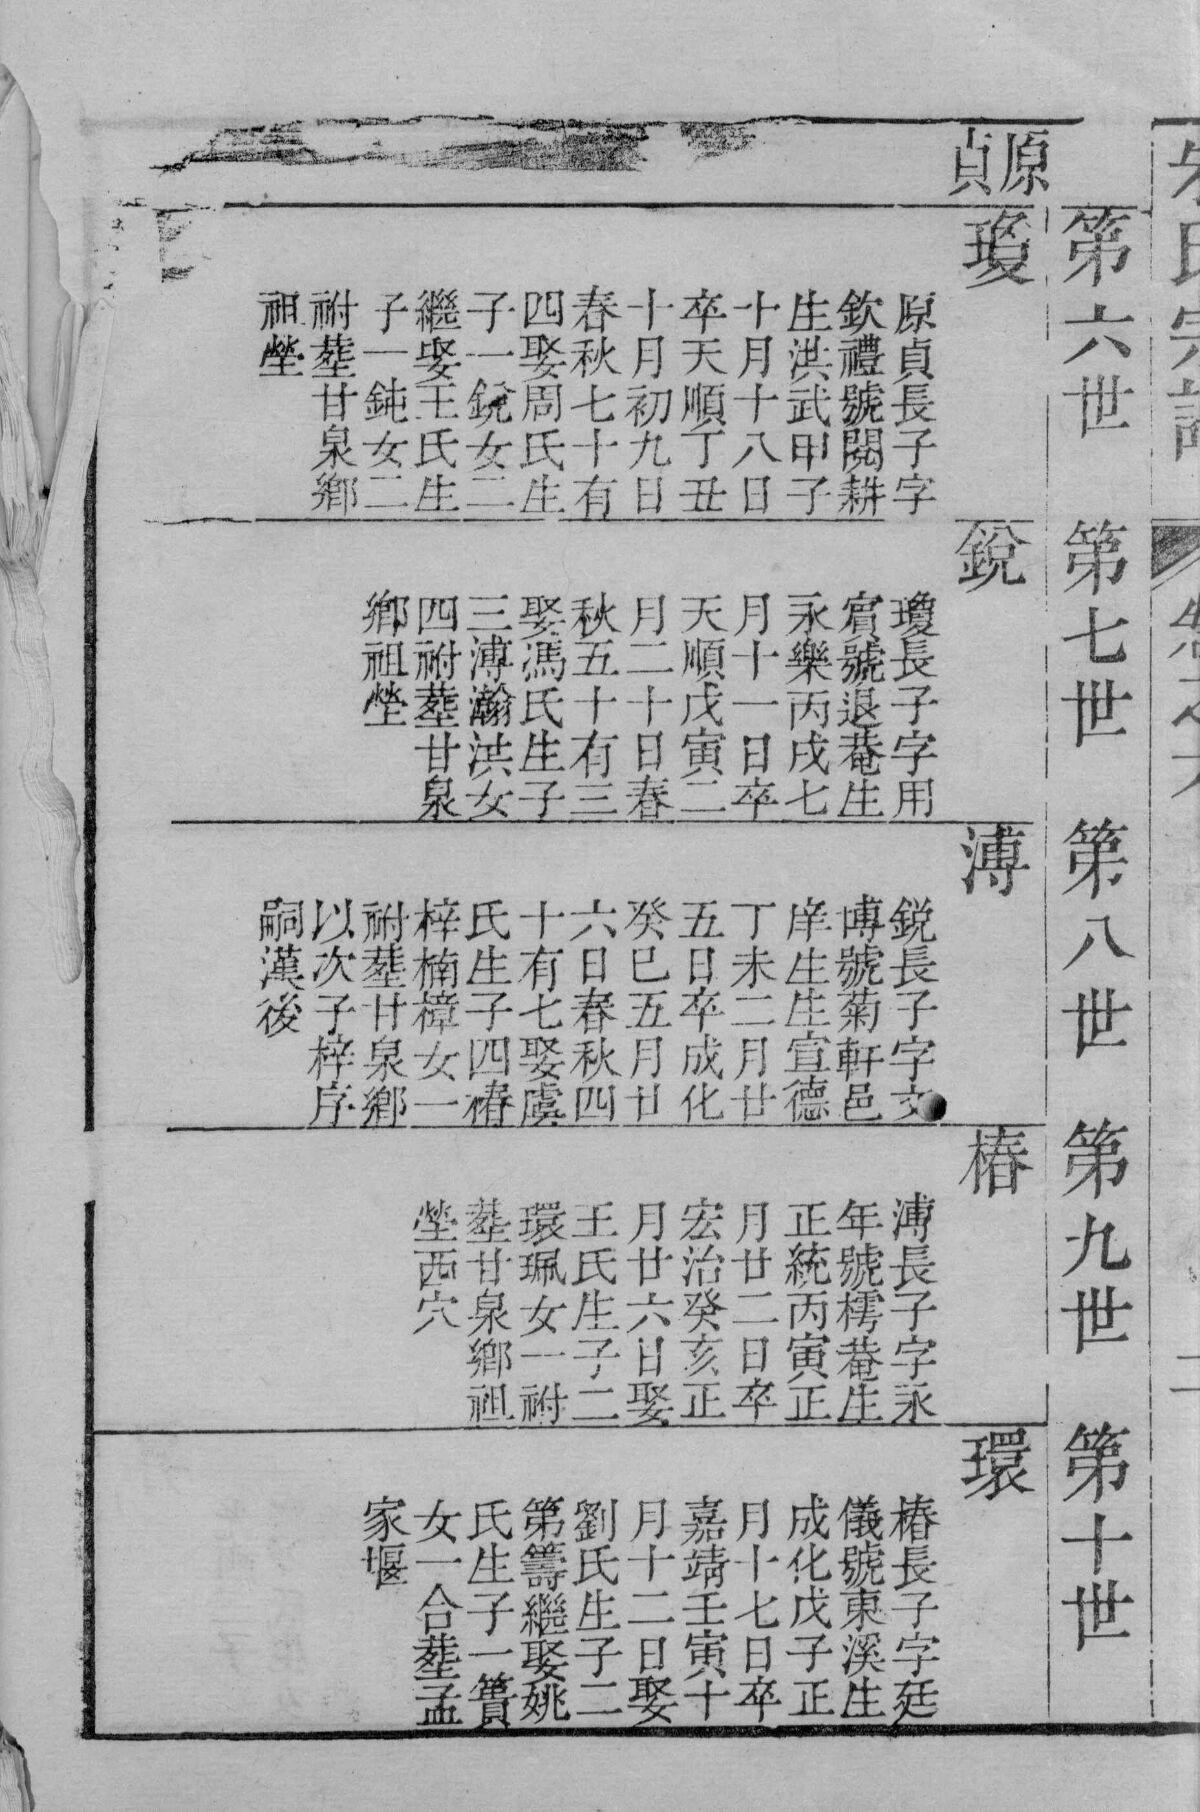 氏宗譜
卷之
二
第六世
第七世
第八世
第九世
第十世
原貞
瓊
原貞長子字
欽禮號閱耕
生洪武甲子
十月十八日
卒天順丁丑
十月初九日
春秋七十有
四娶周氏生
子一銳女二
繼娶王氏生
子一鈍女二
祔塟甘泉鄉
祖塋
銳
瓊長子字用
賓號退菴生
永樂丙戌七
月十一日卒
天順戊寅二
月二十日春
秋五十有三
娶馮氏生子
三溥瀚洪女
四祔塟甘泉
鄉祖塋
溥
銳長子字文
博號菊軒邑
庠生生宣德
丁未二月廿
五日卒成化
癸巳五月廿
六日春秋四
十有七娶虞
氏生子四椿
梓楠樟女一
祔塟甘泉鄉
以次子梓序
嗣漢後
椿
溥長子字永
年號樗菴生
正統丙寅正
月廿二日卒
宏治癸亥正
月廿六日娶
王氏生子二
環珮女一祔
塟甘泉鄉祖
塋西穴
環
椿長子字廷
儀號東溪生
成化戊子正
月十七日卒
嘉靖壬寅十
月十二日娶
劉氏生子二
第籌繼娶姚
氏生子一簣
女一合塟孟
家堰